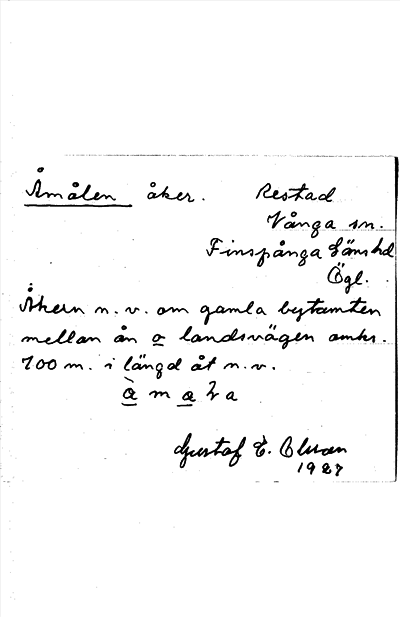 Åmålen åker. Restad
Vånga sn.
Finspånga läns hd
Ögl.
Åkern n. v. om gamla bytomten
mellan ån o landsvägen omkr.
700 m. i längd åt n. v.
m a
Gustaf E. Olsson
1927